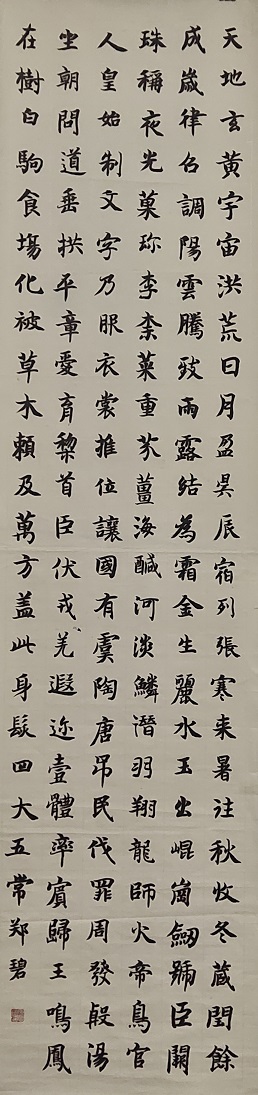 天地玄黃宇宙洪荒日月盈昃辰宿列張寒来暑往秋收冬蔵閏餘
成歲律召調陽雲騰致雨露結為霜金生麗水玉出崐崗劔號臣闕
珠稱夜光菓珎李柰菜重芥薑海醎河淡鱗潛羽翔龍師火帝鳥官
人皇始制文字乃服衣裳推位讓國有虞陶唐吊民伐罪周發殷湯
坐朝問道垂拱平章愛育黎首臣伏戎羌遐迩壹體率賓歸王鳴鳳
在樹白駒食場化被草木賴及萬方盖此身髮四大五常郑碧